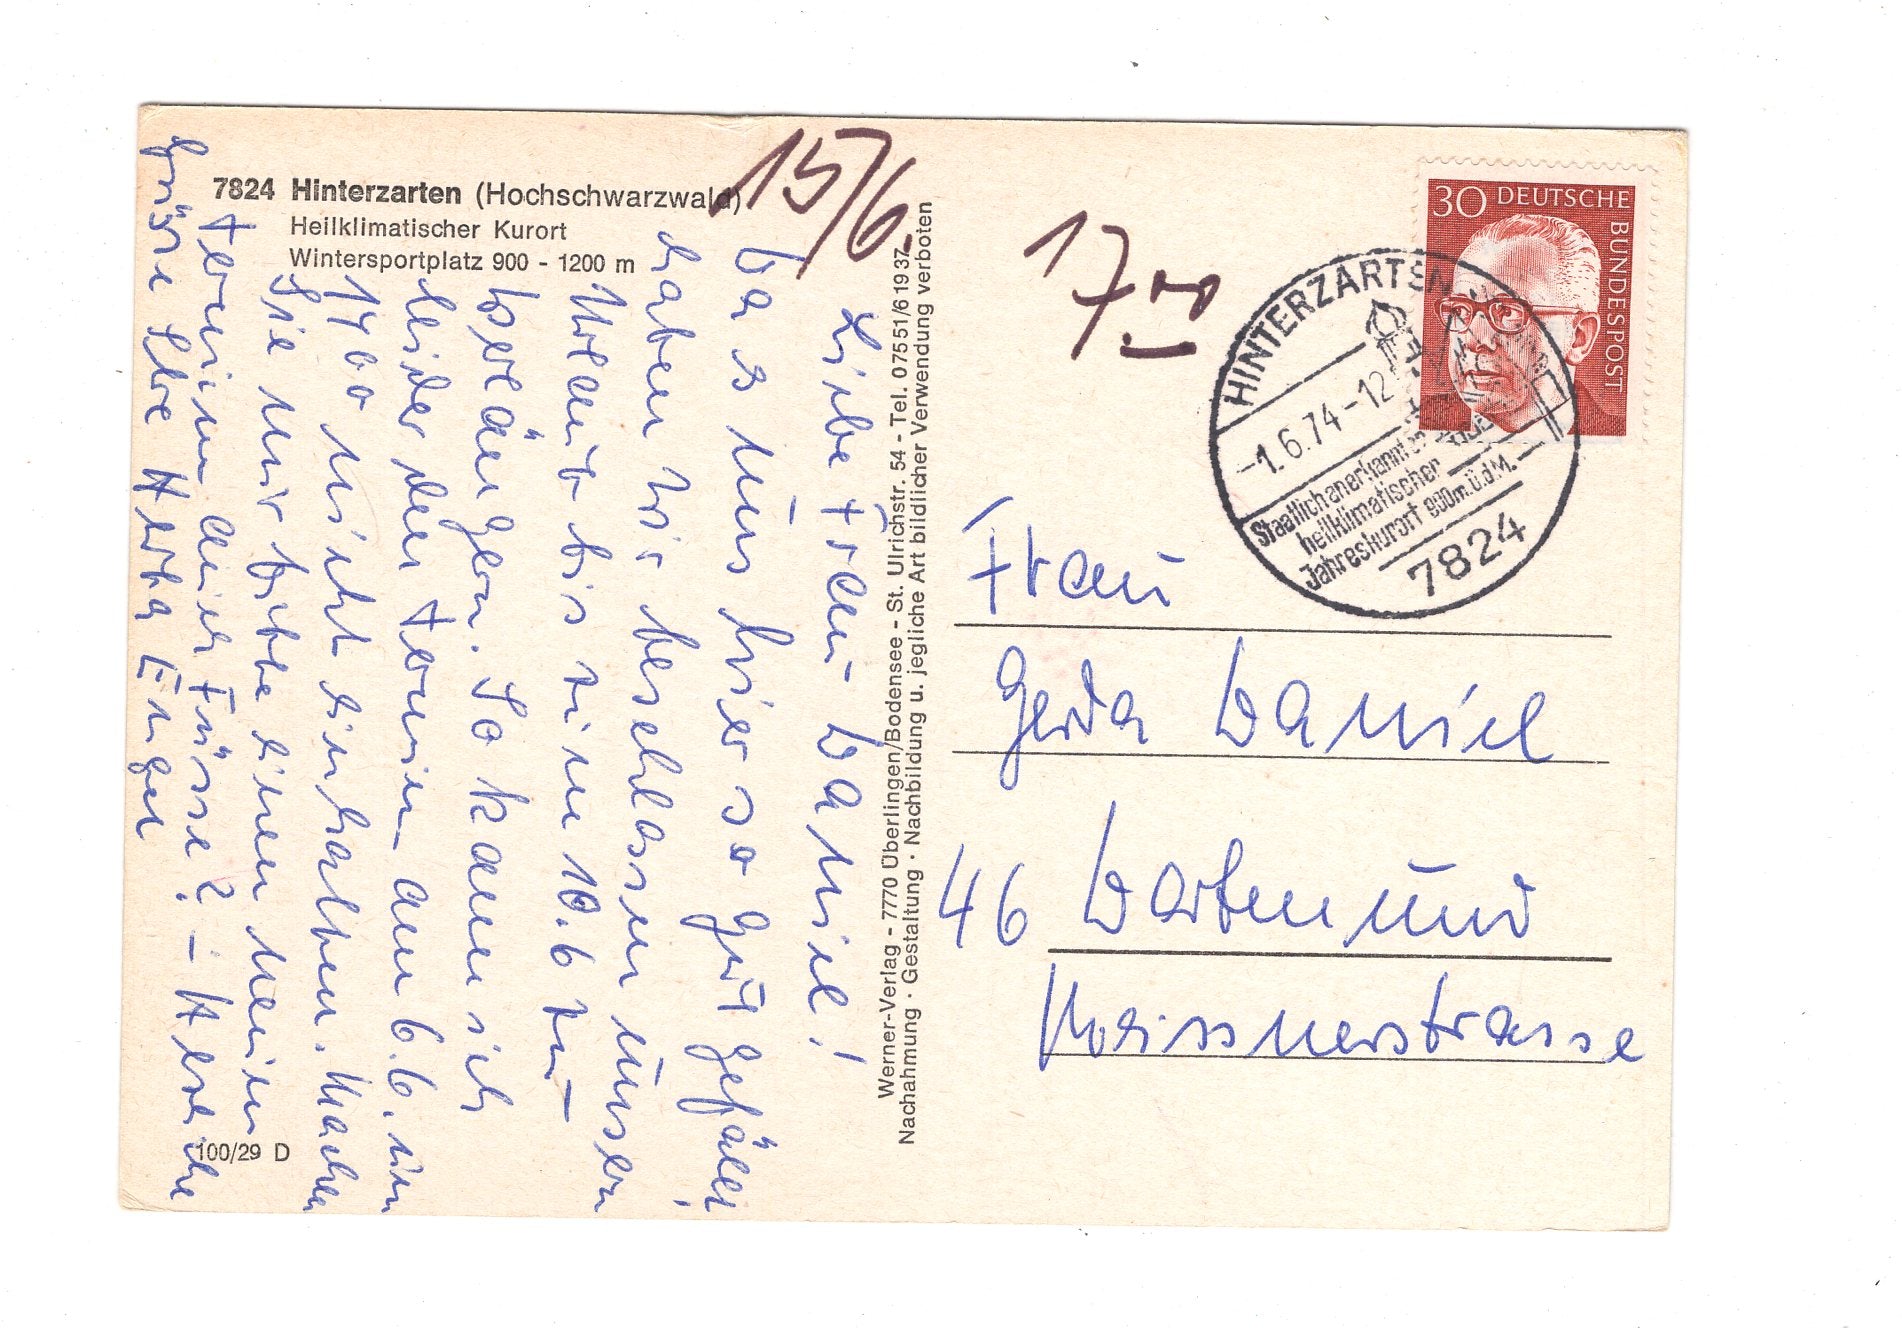 7824 Hinterzarten (Hochschwarzwald)
Heilklimatischer Kurort
Wintersportplatz 900 - 1200 m
15/6.
17.00
Liebe Frau Daniel!
Da es uns hier so gut gefällt
haben wir beschlossen unsern
Urlaub bis zum 10.6 zu
verlängern. So kann ich
leider den Termin am 6.6. um
17 00 nicht einhalten. Machen
Sie mir bitte einen neuen
Termin auch Füsse? - Herzliche
Grüsse Ihre Herta Engel
100/29 D
Werner-Verlag - 7770 Überlingen/Bodensee - St. Ulrichstr. 54 - Tel. 07551/61937
Nachahmung · Gestaltung · Nachbildung u. jegliche Art bildlicher Verwendung verboten
30 DEUTSCHE
BUNDESPOST
HINTERZARTEN
-1.6.74-12
Staatlich anerkannter
heilklimatischer
Jahreskurort 900m.ü.d.M.
7824
Frau
Gerda Daniel
46 Dortmund
Meissnerstrasse